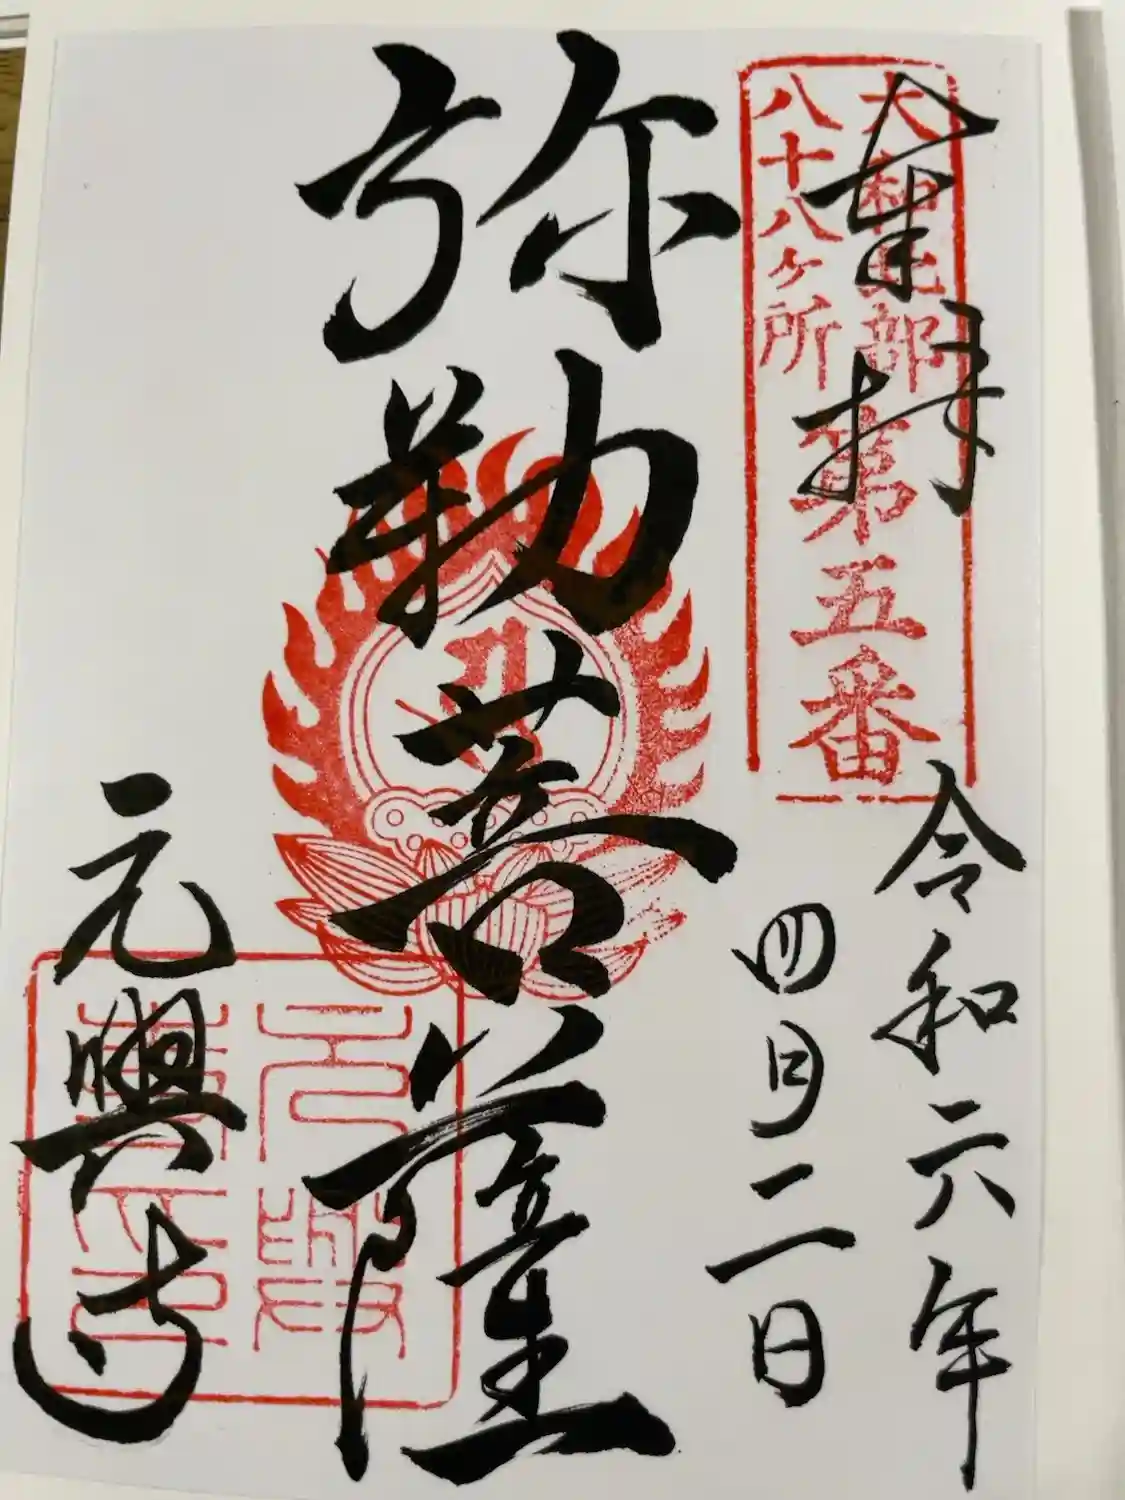 奉拝
大和北部
八十八ヶ所
第五番
令和六年
四月二日
弥勒菩薩
元興寺
元興寺印